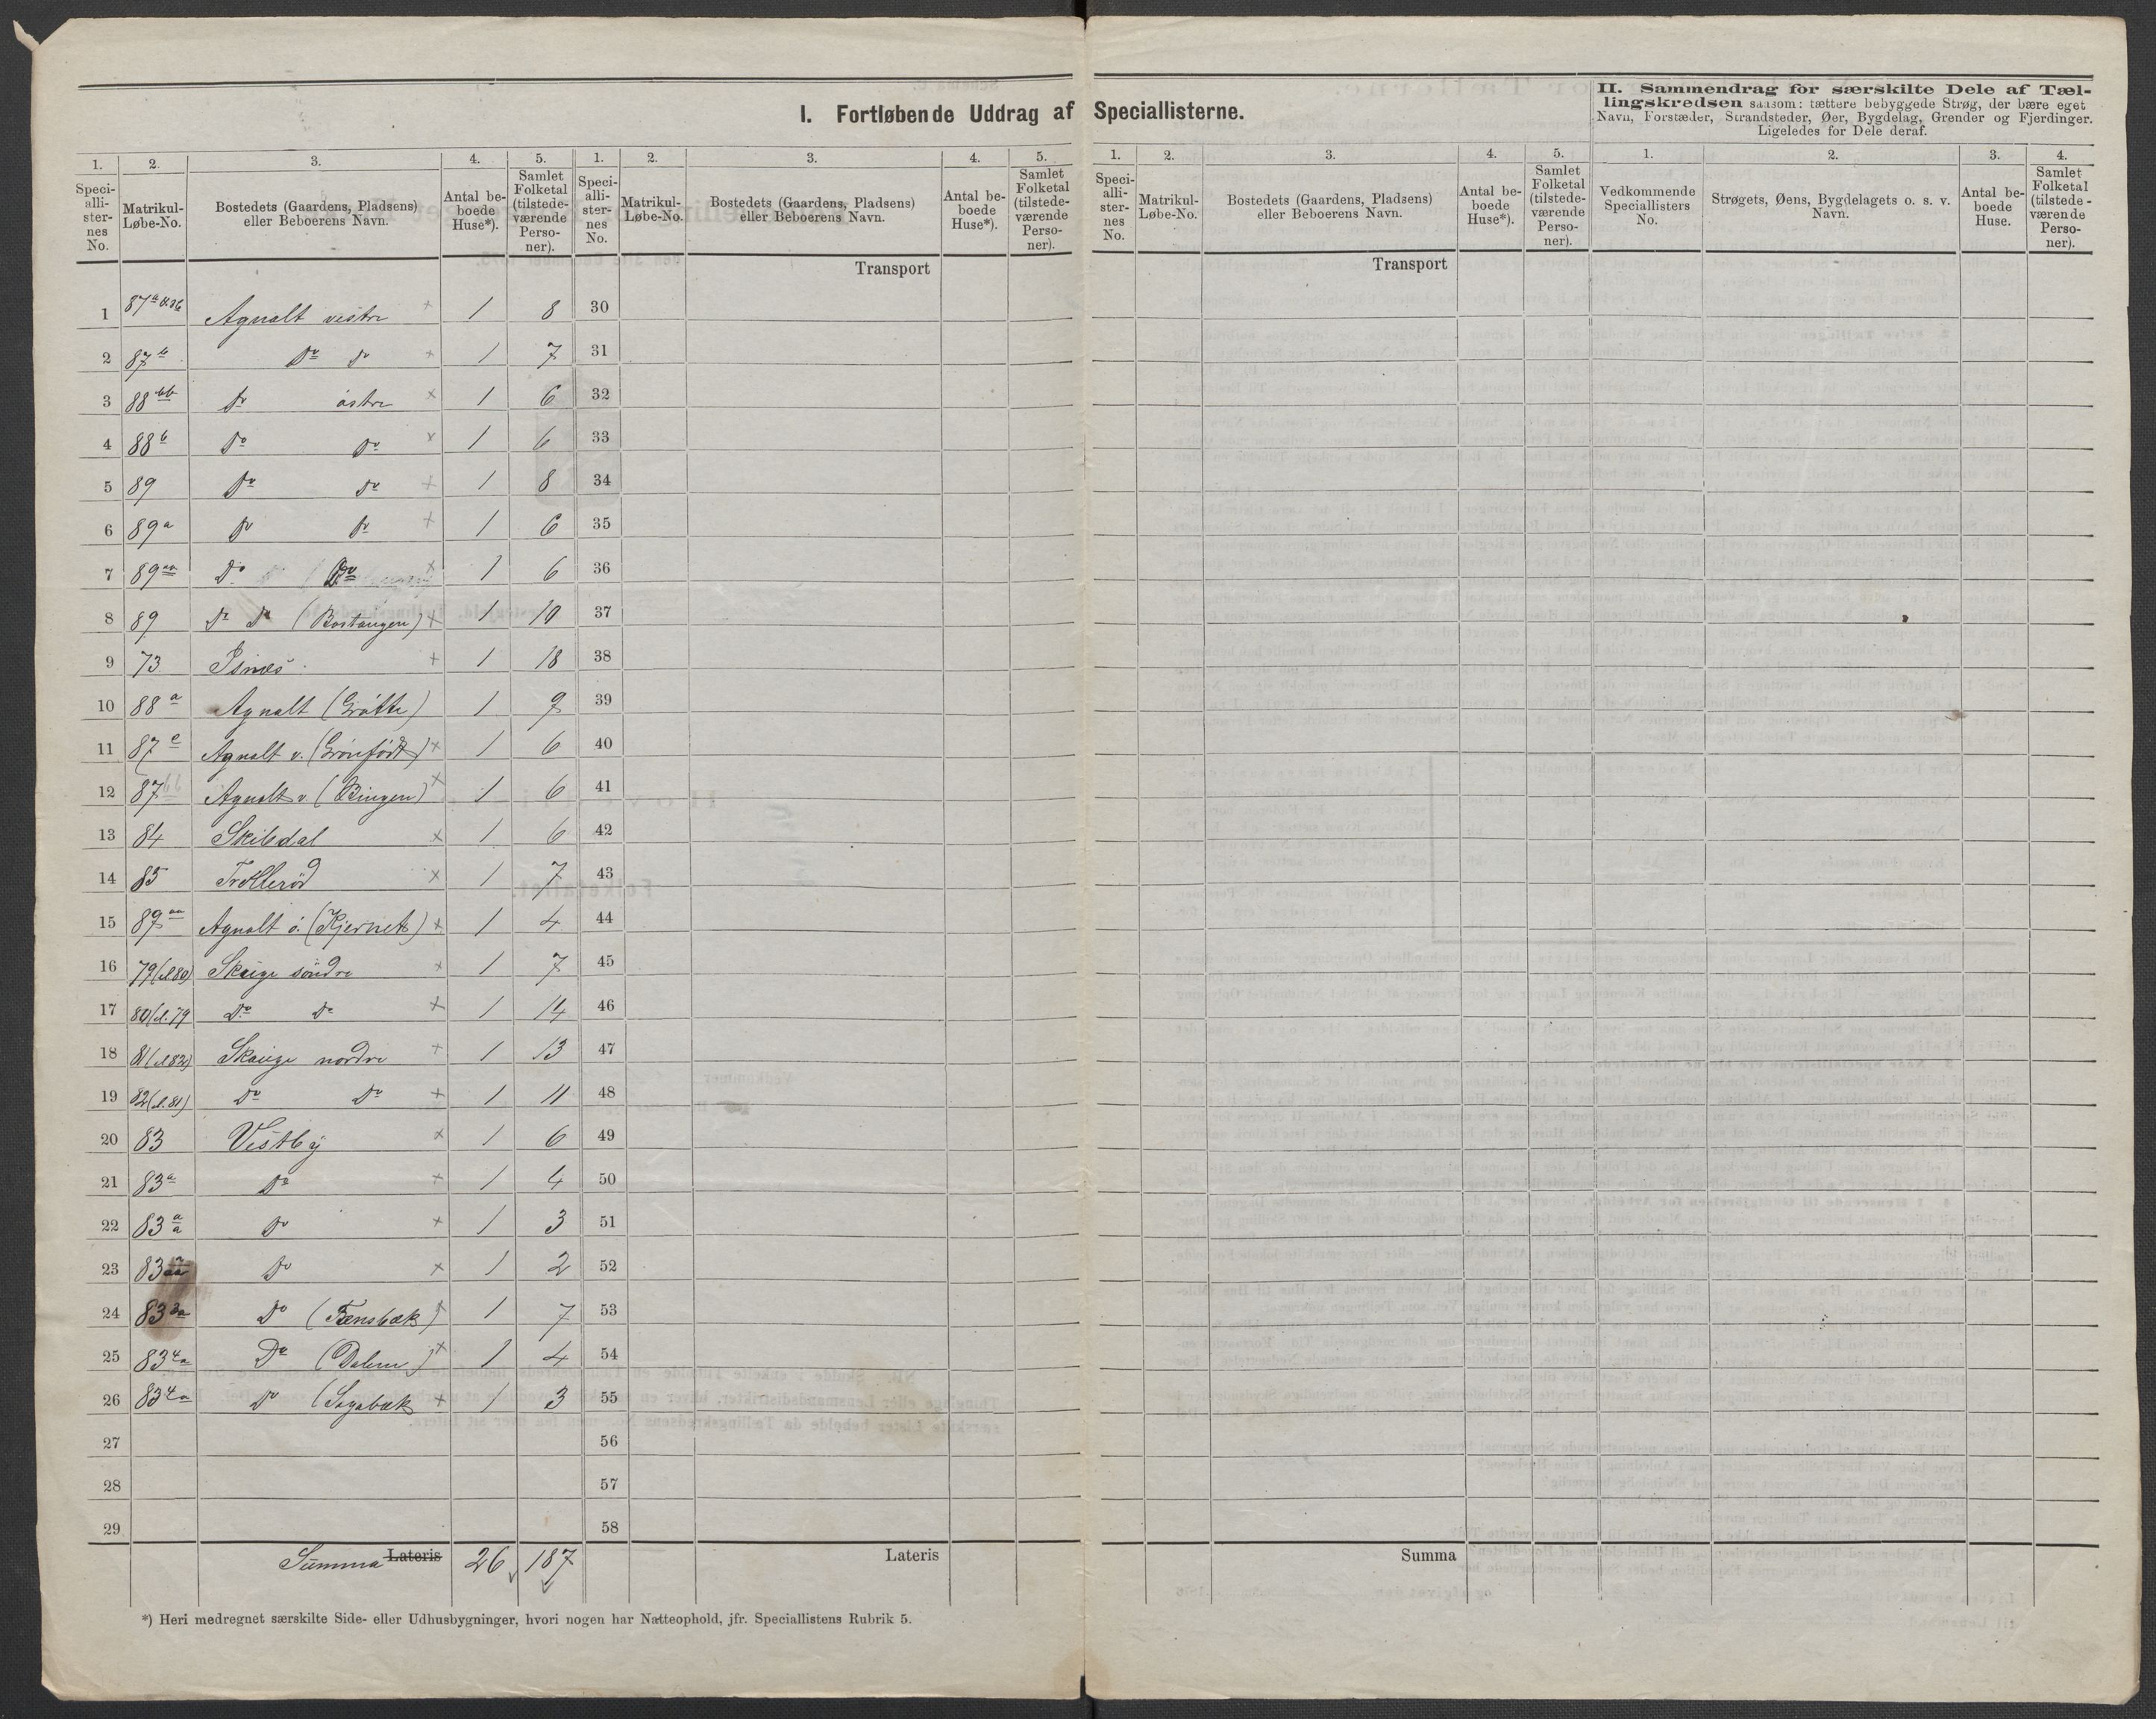 I. Fortløbende Uddrag af Speciallisterne.
II. Sammendrag for særskilte Dele af Tæl-
lingskredsen saasom: tættere bebyggede Strøg, der bære eget
Navn, Forstæder, Strandsteder, Øer, Bygdelag, Grender og Fjerdinger.
Ligeledes for Dele deraf.
1. 2. 3. 4. 5. 1. 2. 3. 4. 5. 1. 2. 3. 4. 5. 1. 2. 3. 4.
Speci-
alli-
ster-
nes
No.
Matrikul-
Løbe-No.
Bostedets (Gaardens, Pladsens)
eller Beboerens Navn.
Antal be-
boede
Huse*).
Samlet
Folketal
(tilstede-
værende
Perso-
ner).
Speci-
alli-
ster-
nes
No.
Matrikul-
Løbe-No.
Bostedets (Gaardens, Pladsens)
eller Beboerens Navn.
Antal be-
boede
Huse*).
Samlet
Folketal
(tilstede-
værende
Perso-
ner).
Speci-
alli-
ster-
nes
No.
Matrikul-
Løbe-No.
Bostedets (Gaardens, Pladsens)
eller Beboerens Navn.
Antal be-
boede
Huse*).
Samlet
Folketal
(tilstede-
værende
Perso-
ner).
Vedkommende
Speciallisters
No.
Strøgets, Øens, Bygdelagets o. s. v.
Navn.
Antal be-
boede
Huse.
Samlet
Folketal
(tilstede-
værende
Perso-
ner).
Transport Transport
1 Agnalt vestre × 1 8 30
2 87b Do Do × 1 7 31
3 88bb Do östre × 1 6 32
4 88b Do Do × 1 6 33
5 89 Do Do × 1 8 34
6 89a Do Do × 1 6 35
7 89aa Do Do × 1 6 36
8 89 Do Do (Bostangen) × 1 10 37
9 73 Isnæs × 1 18 38
10 88a Agnalt (Gråtte) 1 9 39
11 87c Agnalt v. ( ) × 1 6 40
12 87bb Agnalt v (Bingen) × 1 6 41
13 84 Skibdal × 1 6 42
14 85 Trolleröd × 1 7 43
15 89aa Agnalt ö. (Kjernet) × 1 4 44
16 79(el 80) Skauge söndre × 1 7 45
17 80(el. 79 Do Do × 1 14 46
18 81(el 82) Skauge nordre × 1 13 47
19 82(el. 81) Do Do × 1 11 48
20 83 Vestby × 1 6 49
21 83a Do × 1 4 50
22 83aa Do × 1 3 51
23 83aaa Do × 1 2 52
24 833a Do (Tensbæk) × 1 7 53
25 834a Do (Dalen) × 1 4 54
26 834a Do (Sagabæk × 1 3 55
27 56
28 57
29 58
Summa Lateris 26 187 Lateris Summa
*) Heri medregnet særskilte Side- eller Udhusbygninger, hvori nogen har Natteophold, jfr. Speciallistens Rubrik 5.